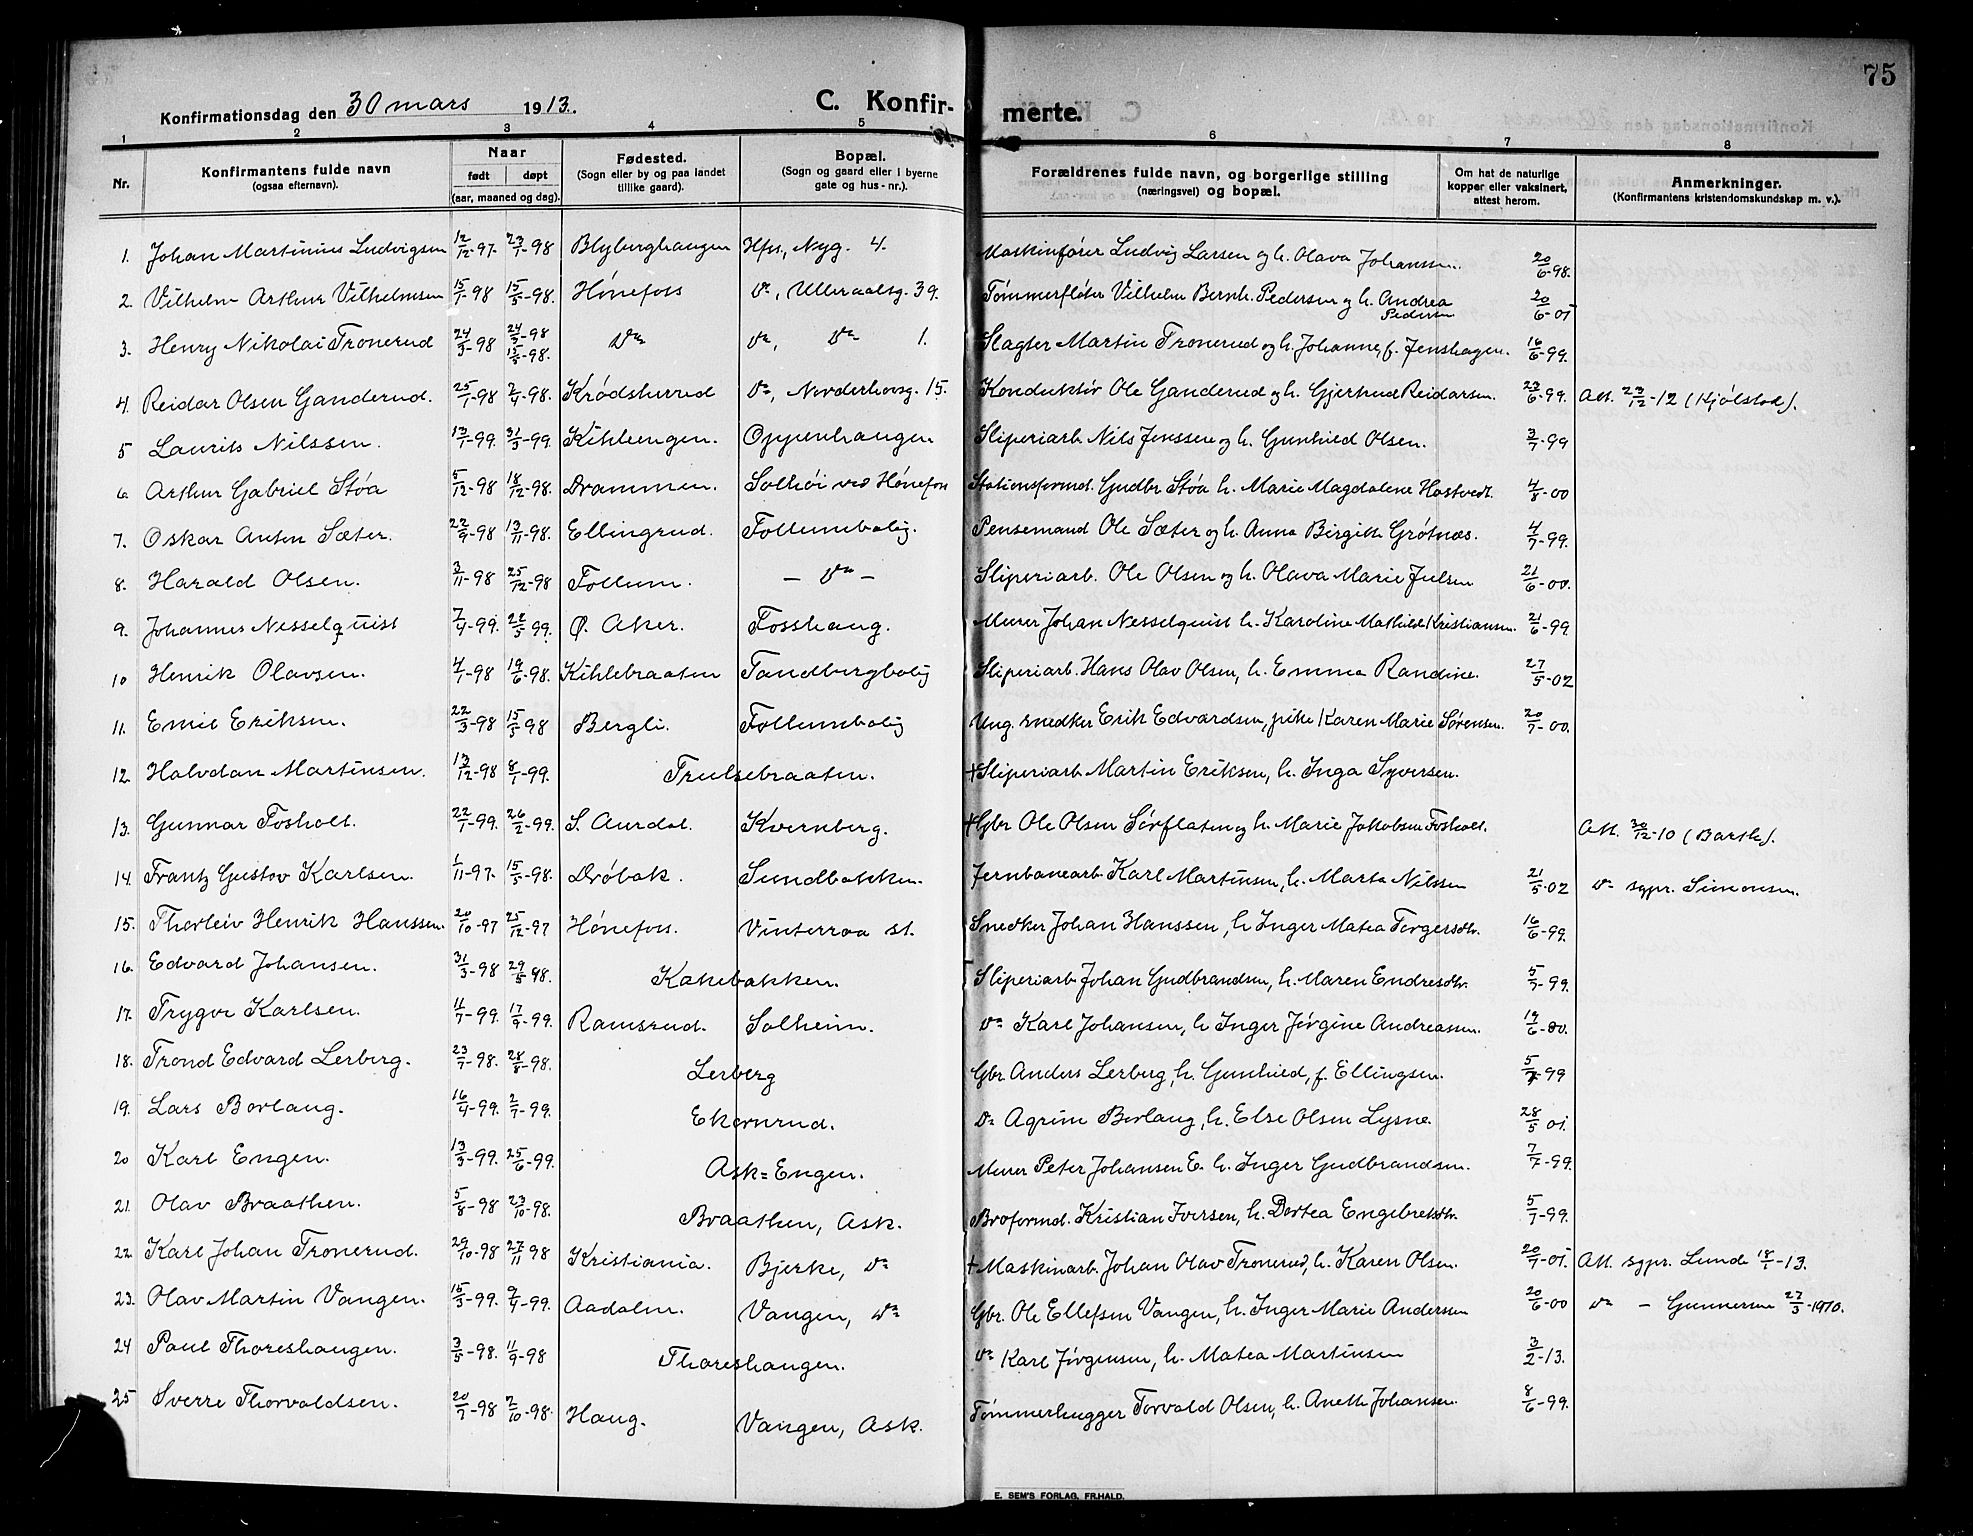 75
Konfirmationsdag den 30 mars 1913.
C. Konfir-
merte.
1 2 3 4 5 6 7 8
Nr.
Konfirmantens fulde navn
(ogsaa efternavn).
Naar
født døpt
(aar, maaned og dag).
Fødested.
(Sogn eller by og paa landet
tillike gaard).
Bopæl.
(Sogn og gaard eller i byerne
gate og hus-nr.).
Forældrenes fulde navn, og borgerlige stilling
(næringsvei) og bopæl.
Om hat de naturlige
kopper eller vaksinert,
attest herom.
Anmerkninger.
(Konfirmantens kristendomskundskap m. v.).
1. Johan Martinius Ludvigsen 12/12-97. 23/1-98 Blyberghaugen Hfss, Nyg. 4. Maskinfører Ludvig Larsen og h. Olava Johanssen. 20/6-98.
2. Vilhelm Arthur Vilhelmsen 15/1-98 15/5-98. Hønefoss do, Ulleraalsg. 39. Tømmerfløter Vilhelm Bernh. Pedersen og h. Andrea Pedersen 20/6-01
3. Henry Nikolai Tronerud 24/3-98 24/3-98 15/5-98. do do, do 1. Slagter Martin Tronerud og h. Johanne, f. Jenshagen. 16/6-99.
4. Reidar Olsen Ganderud. 25/1-98 2/4-98. Krødsherred do, Norderhovsg. 15. Konduktør Ole Ganderud og h. Gjertrud Reidarsen. 23/6-99. Att. 23/12-12 (Kjølstad).
5 Laurits Nilssen. 13/1-99. 31/3-99. Kihleengen. Oppenhaugen Sliperiarb. Nils Jenssen og h. Gunhild Olsen. 3/7-99
6 Arthur Gabriel Støa 5/12-98 18/12-98. Drammen. Solhøi ved Hønefoss Stationsformd. Gudbr Støa h. Marie Magdalene Hostvedt. 4/8-00
7. Oskar Anton Sæter. 22/9-98 13/11-98. Ellingrud. Follumbolig. Pensemand Ole Sæter og h. Anna Birgitte Grøtnæs. 4/7-99.
8. Harald Olsen. 3/11-98 25/12-98 Follum. – do – Sliperiarb. Ole Olsen og h. Olava Marie Juelsen 21/6-00.
9. Johannes Nesselquist 7/4-99. 22/5 99. Ø. Aker. Fosshaug. Murer Johan Nesselquist h. Karoline Mathilde Kristiansen. 21/6-99.
10 Henrik Olavsen. 4/1-98 19/6-98. Kihlebraaten Tandbergbolig Sliperiarb. Hans Olav Olsen, h. Emma Randine. 27/5-02
11. Emil Eriksen. 22/3-98 15/5-98 Bergli. Follumbolig Ung. snedker Erik Edvardsen, pike Karen Marie Sørensen. 20/7-00.
12 Halvdan Martinsen. 13/12-98 8/1-99. Trulsebraaten. † Sliperiarb Martin Eriksen, h. Inga Syversen.
13. Gunnar Fosholt. 22/1-99. 26/2-99. S. Aurdal. Kvernberg. † Gbr Ole Olsen Sørflaten og h. Marie Jakobsen Fosholt. Att. 30/12-10 (Barth).
14. Frantz Gustav Karlsen. 1/11-97. 15/5-98. Drøbak. Sundbakken. Jernbanearb. Karl Martinsen, h. Marta Nilssen 21/5-02 do sgpr. Simonsen.
15. Thorleiv Henrik Hanssen. 20/10-97 25/12-97 Hønefoss. Vinterroa st. Snedker Johan Hanssen, h Inger Matea Torgersdtr. 16/6-99.
16. Edvard Johansen. 31/3-98 29/5 98. Kakebakken. Sliperiarb Johan Gudbrandsen, h. Maren Endresdtr. 5/7-99.
17. Trygve Karlsen. 11/7-99. 17/9-99. Ramsrud. Solheim. do Karl Johansen, h Inger Jørgine Andreassen. 19/6-00.
18. Trond Edvard Lerberg. 23/7-98. 28/8-98. Lerberg Gbr. Anders Lerberg, h. Gunhild, f. Ellingsen. 5/7-99
19. Lars Borlaug. 16/4-99. 2/7-99. Ekornrud. do Agrim Borlaug, h. Else Olsen Lysne. 28/5 01.
20 Karl Engen. 13/3-99. 25/6-99. Ask=Engen. Murer Peter Johansen E. h. Inger Gudbrandsen. 7/7-99.
21. Olav Braathen. 5/8-98 23/10-98. Braathen, Ask. Broformd. Kristian Iversen, h. Dortea Engebretsdtr. 5/7-99.
22 Karl Johan Tronerud. 29/10-98 27/11 98 Kristiania. Bjerke, do † Maskinarb. Johan Olav Tronerud, h. Karen Olsen. 20/7-01. Att. sgpr. Lunde 18/1-13.
23. Olav Martin Vangen. 15/3-99. 9/4-99. Aadalen. Vangen, do Gbr. Ole Ellefsen Vangen, h. Inger Marie Andersen 20/6-00 do – Gunnersen 27/3-1910.
24 Paul Thoreshaugen. 3/5-98. 11/9-98 Thoreshaugen. do Karl Jørgensen, h. Matea Martinsen 3/2-13.
25 Sverre Thorvaldsen. 20/7-98 2/10-98. Haug. Vangen, Ask. Tømmerhugger Torvald Olsen, h. Anette Johansen. 8/6-99.
E. SEM'S FORLAG, FR.HALD.